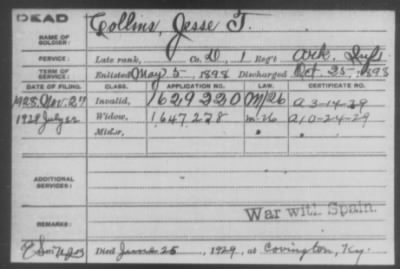 DEAD
NAME OF SOLDIER: Collins, Jesse T.
SERVICE: Late rank, Co. D, 1 Reg't Ark. Inf.
TERM OF SERVICE: Enlisted May 5, 1898 Discharged Oct. 25, 1898
DATE OF FILING. CLASS. APPLICATION NO. LAW. CERTIFICATE NO.
1928 Nov. 27 Invalid, 1629220 M/26 a 3-14-29
Widow, 1647228 m-26 a 10-24-29
Minor,
ADDITIONAL SERVICES:
War with Spain.
REMARKS:
Died June 25, 1929, at Covington, Ky.